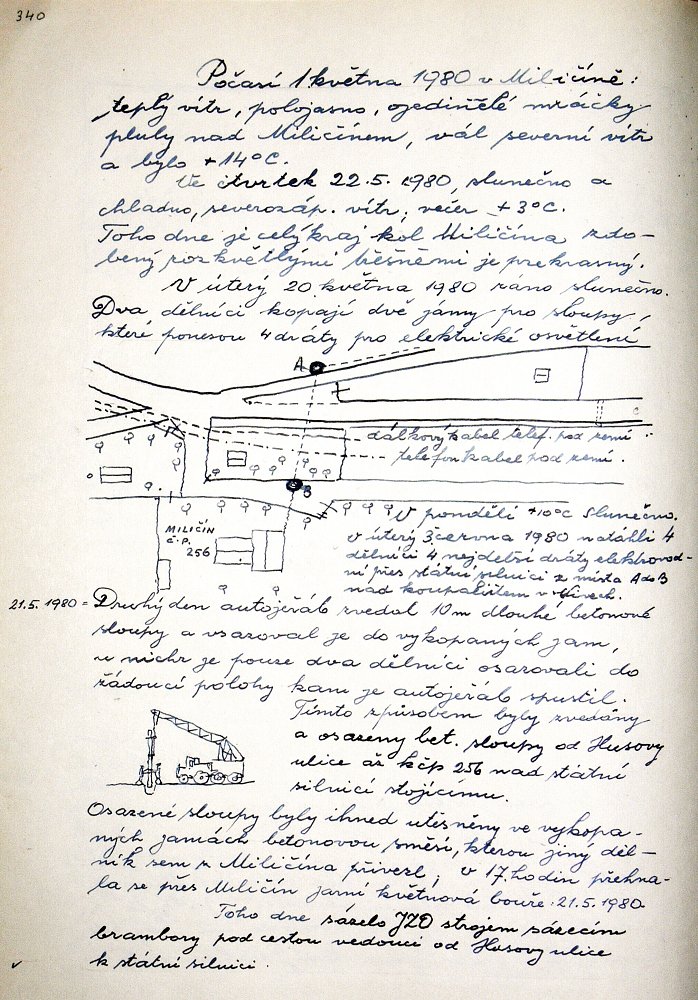 340
Počasí 1 května 1980 v Miličíně:
teplý vítr, polojasno, ojedinělé mráčky
pluly nad Miličínem, vál severní vítr
a bylo +14°C.
Ve čtvrtek 22.5. 1980, slunečno a
chladno, severozáp. vítr, večer +3°C.
Toho dne je celý kraj kol Miličína zdo-
bený rozkvětlými třešněmi je prekrasný.
V úterý 20 května 1980 ráno slunečno.
Dva dělníci kopají dvě jámy pro sloupy,
které ponesou 4 dráty pro elektrické osvětlení
A
dálkový kabel telef. pod zemí
telefon kabel pod zemí.
B
MILIČÍN
Č.P.
256
V pondělí +10°C slunečno.
v úterý 3 června 1980 natáhli 4
dělníci 4 nejdelší dráty elektrovod-
ní přes státní silnici z místa A do B
nad koupalištěm v
21.5. 1980 = Druhý den autojeřáb zvedal 10m dlouhé betonové
sloupy a vsazoval je do vykopaných jam,
u nichž je pouze dva dělníci osazovali do
žádoucí polohy kam je autojeřáb spustil.
Tímto způsobem byly zvedány
a osazeny bet. sloupy od Husovy
ulice až k čp 256 nad státní
silnicí stojícímu.
Osazené sloupy byly ihned utěsněny ve vykopa-
ných jamách betonovou směsí, kterou jiný děl-
ník sem z Miličína přivezl; v 17.hodin přehna-
la se přes Miličín jarní květnová bouře. 21.5.1980.
Toho dne sázelo JZD strojem sázecím
brambory pod cestou vedoucí od Husovy ulice
k státní silnici.